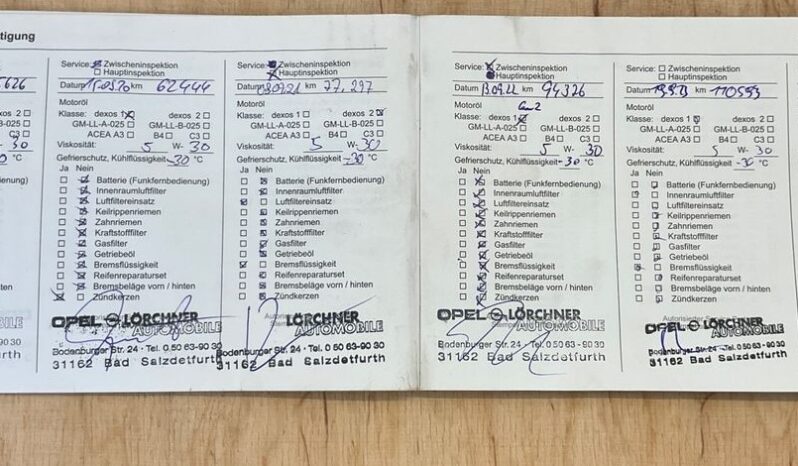 tigung
626
xos 2 ☐
025 ☐
C3 ☐
- 30
°C
ienung)
nten
BILE
90 30
Service: Zwischeninspektion
☐ Hauptinspektion
Datum km 62444
Motoröl
Klasse: dexos 1 ☒ dexos 2 ☐
GM-LL-A-025 ☐ GM-LL-B-025 ☐
ACEA A3 ☐ B4 ☐ C3 ☐
Viskosität: 5 W- 30
Gefrierschutz, Kühlflüssigkeit -30 °C
Ja Nein
Batterie (Funkfernbedienung)
Innenraumluftfilter
Luftfiltereinsatz
Keilrippenriemen
Zahnriemen
Kraftstofffilter
Gasfilter
Getriebeöl
Bremsflüssigkeit
Reifenreparaturset
Bremsbeläge vorn / hinten
Zündkerzen
OPEL LÖRCHNER
AUTOMOBILE
Bodenburger Str. 24 · Tel. 0 50 63 - 90 30
31162 Bad Salzdetfurth
Service: Zwischeninspektion
Hauptinspektion
Datum km 77,297
Motoröl
Klasse: dexos 1 ☐ dexos 2 ☒
GM-LL-A-025 ☐ GM-LL-B-025 ☐
ACEA A3 ☐ B4 ☐ C3 ☐
Viskosität: 5 W- 30
Gefrierschutz, Kühlflüssigkeit -30 °C
Ja Nein
Batterie (Funkfernbedienung)
Innenraumluftfilter
Luftfiltereinsatz
Keilrippenriemen
Zahnriemen
Kraftstofffilter
Gasfilter
Getriebeöl
Bremsflüssigkeit
Reifenreparaturset
Bremsbeläge vorn / hinten
Zündkerzen
LÖRCHNER
AUTOMOBILE
Bodenburger Str. 24 · Tel. 0 50 63 - 90 30
31162 Bad Salzdetfurth
Service: Zwischeninspektion
Hauptinspektion
Datum 13.09.22 km 94326
Motoröl
Klasse: dexos 1 dexos 2 ☐
GM-LL-A-025 GM-LL-B-025 ☐
ACEA A3 ☐ B4 ☐ C3 ☐
Viskosität: 5 W- 30
Gefrierschutz, Kühlflüssigkeit -30 °C
Ja Nein
Batterie (Funkfernbedienung)
Innenraumluftfilter
Luftfiltereinsatz
Keilrippenriemen
Zahnriemen
Kraftstofffilter
Gasfilter
Getriebeöl
Bremsflüssigkeit
Reifenreparaturset
Bremsbeläge vorn / hinten
Zündkerzen
OPEL LÖRCHNER
AUTOMOBILE
Bodenburger Str. 24 · Tel. 0 50 63 - 90 30
31162 Bad Salzdetfurth
Service: ☐ Zwischeninspektion
Hauptinspektion
Datum km 110593
Motoröl
Klasse: dexos 1 dexos 2 ☐
GM-LL-A-025 ☐ GM-LL-B-025 ☐
ACEA A3 ☐ B4 ☐ C3 ☐
Viskosität: 5 W- 30
Gefrierschutz, Kühlflüssigkeit °C
Ja Nein
Batterie (Funkfernbedienung)
Innenraumluftfilter
Luftfiltereinsatz
Keilrippenriemen
Zahnriemen
Kraftstofffilter
Gasfilter
Getriebeöl
Bremsflüssigkeit
Reifenreparaturset
Bremsbeläge vorn / hinten
Zündkerzen
OPEL LÖRCHNER
AUTOMOBILE
Bodenburger Str. 24 · Tel. 0 50 63 - 90 30
31162 Bad Salzdetfurth